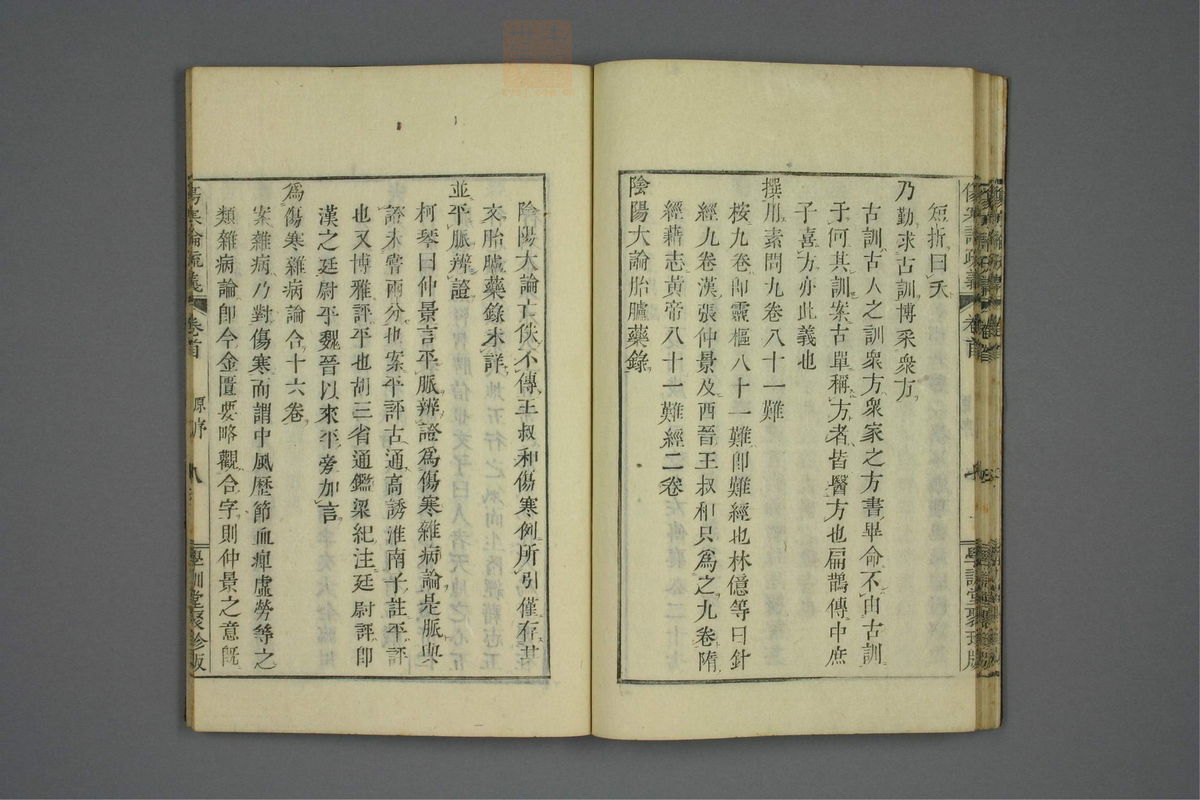 短折曰夭
乃勤求古訓博采衆方
古訓古人之訓衆方衆家之方書畢命不由古訓
于何其訓案古單稱方者皆醫方也扁鵲傳中庶
子喜方亦此義也
撰用素問九卷八十一難
按九卷卽靈樞八十一難卽難經也林億等曰針
經九卷漢張仲景及西晉王叔和只爲之九卷隋
經藉志黃帝八十一難經二卷
陰陽大論胎臚藥錄
陰陽大論亡佚不傳王叔和傷寒例所引僅存其
文胎臚藥錄未詳
並平脈辨證
柯琴曰仲景言平脈辨證爲傷寒雜病論是脈與
證未嘗兩分也案平評古通高誘淮南子註平評
也又博雅評平也胡三省通鑑梁紀注廷尉評卽
漢之廷尉平魏晉以來平旁加言
爲傷寒雜病論合十六卷
案雜病乃對傷寒而謂中風歷節血痺虛勞等之
類雜病論卽今金匱要略觀合字則仲景之意旣
傷寒論疏義
卷首
原序
八
學訓堂聚珍版